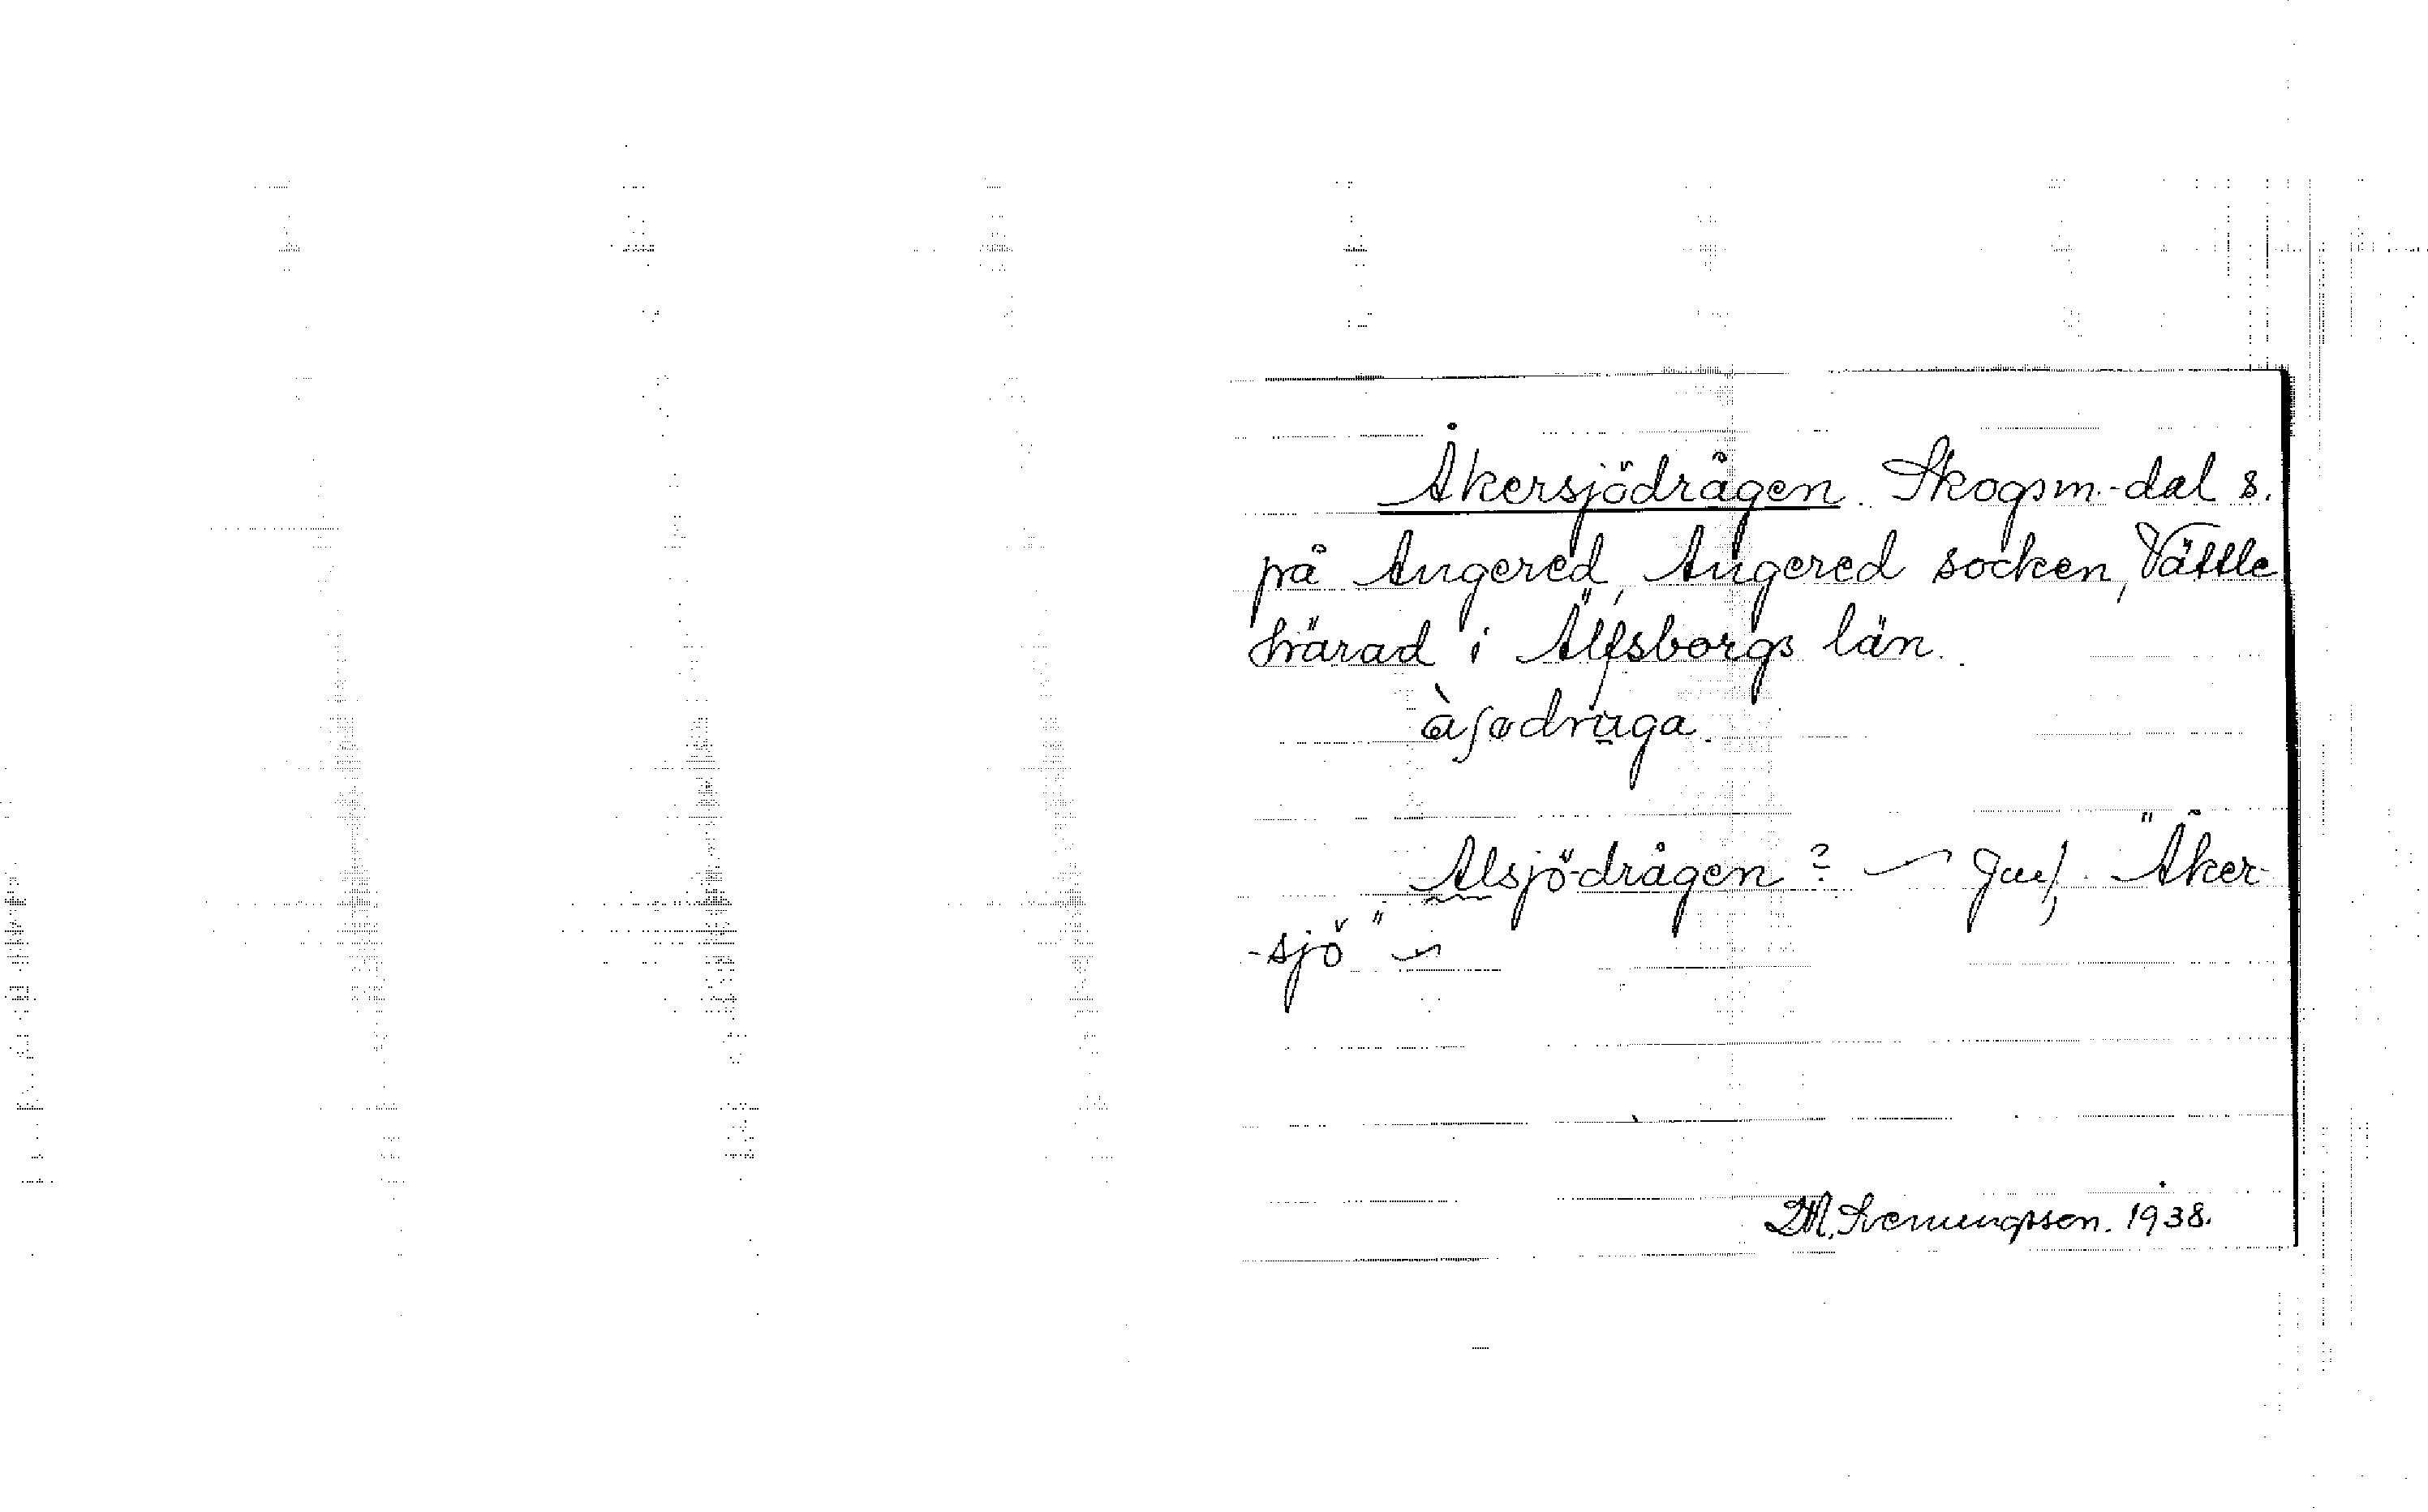 Åkersjödrågen. Skogsm.-dal s.
på Angered, Angered socken, Vättle
härad i Älfsborgs län.
Alsjö-drågen? Jmf. "Åker-
-sjö"
1938.